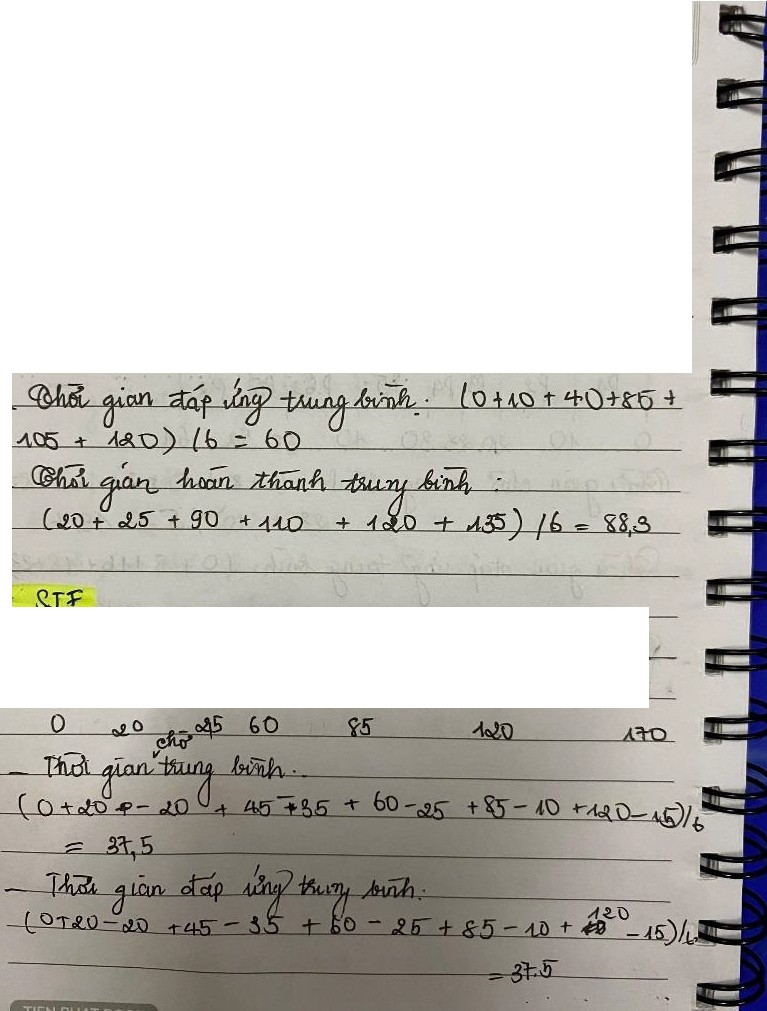 Thời gian đáp ứng trung bình: (0+10+40+85+
105 + 120) /6 = 60
Thời gian hoàn thành trung bình :
(20+ 25 + 90 +110 + 120 + 135) /6 = 88,3
SJF
0 20 25 60 85 120 170
chờ
- Thời gian trung bình.
(0+20 - 20 + 45 - 35 + 60-25 +85-10 +120-15)/6
= 37,5
- Thời gian đáp ứng trung bình:
120
(0+20-20 +45-35 + 60 - 25 + 85 - 10 + -15)/6
= 37.5